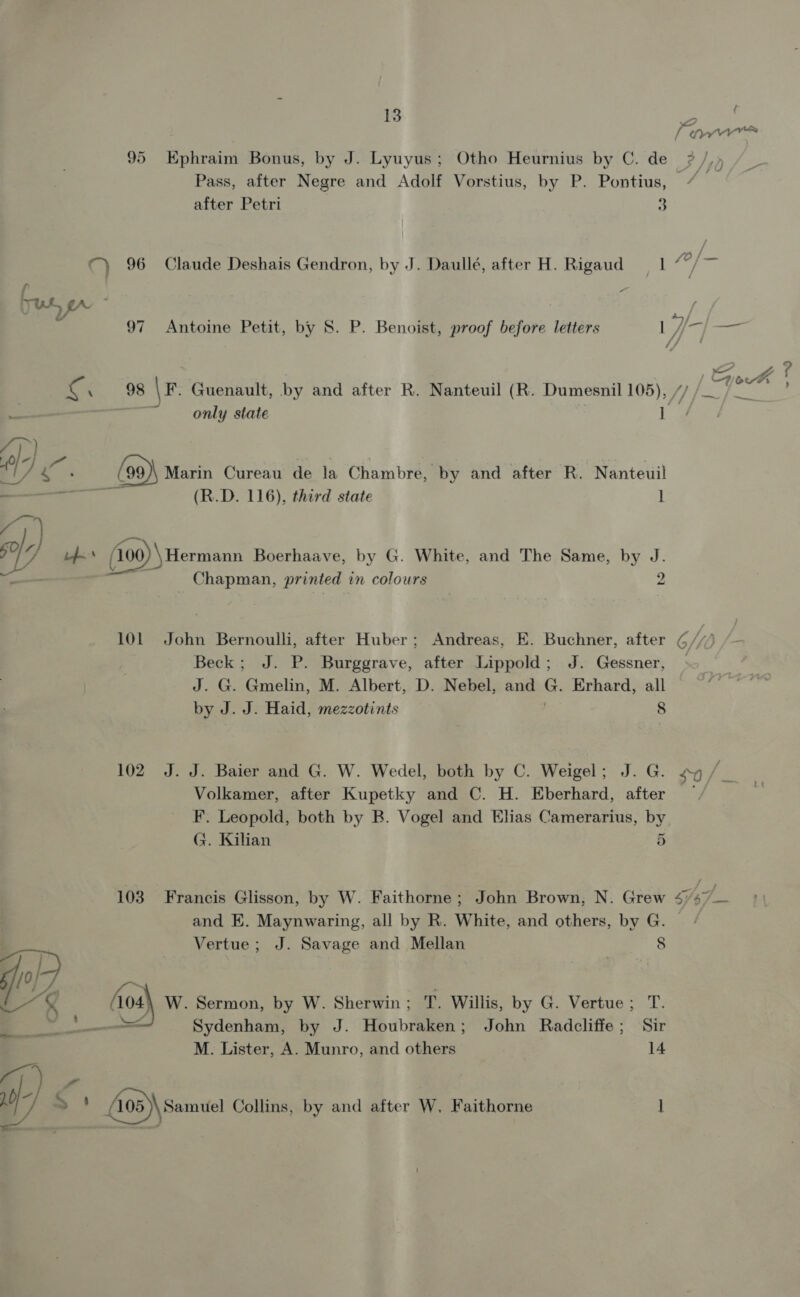 13
95 Ephraim Bonus, by J. Lyuyus; Otho Heurnius by C. de
Pass, after Negre and Adolf Vorstius, by P. Pontius,
after Petri 3
96 Claude Deshais Gendron, by J. Daullé, after H. Rigaud 1
97 Antoine Petit, by S. P. Benoist, proof before letters 1
98 F. Guenault, by and after R. Nanteuil (R. Dumesnil 105),
only state 1
99 Marin Cureau de la Chambre, by and after R. Nanteuil
(R.D. 116), third state 1
100 Hermann Boerhaave, by G. White, and The Same, by J.
Chapman, printed in colours 2
101 John Bernoulli, after Huber; Andreas, E. Buchner, after
Beck; J. P. Burggrave, after Lippold; J. Gessner,
J. G. Gmelin, M. Albert, D. Nebel, and G. Erhard, all
by J. J. Haid, mezzotints 8
102 J. J. Baier and G. W. Wedel, both by C. Weigel; J. G.
Volkamer, after Kupetky and C. H. Eberhard, after
F. Leopold, both by B. Vogel and Elias Camerarius, by
G. Kilian 5
103 Francis Glisson, by W. Faithorne; John Brown, N. Grew
and E. Maynwaring, all by R. White, and others, by G.
Vertue; J. Savage and Mellan 8
104 W. Sermon, by W. Sherwin; T. Willis, by G. Vertue; T.
Sydenham, by J. Houbraken; John Radcliffe; Sir
M. Lister, A. Munro, and others 14
105 Samuel Collins, by and after W. Faithorne 1